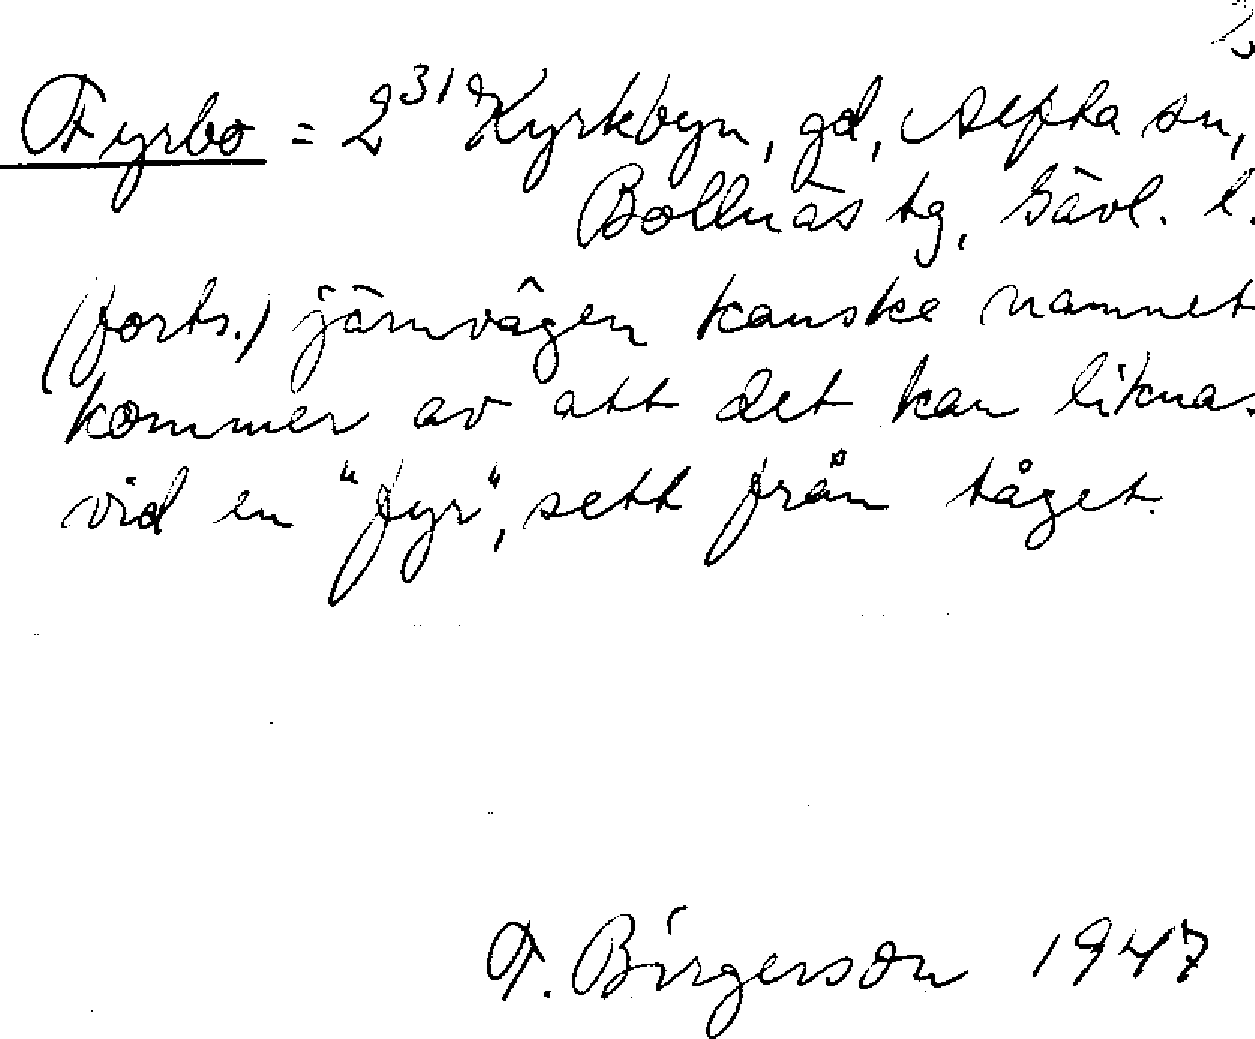 2
Fyrbo = 2³¹ Kyrkbyn, gd, Alfta sn,
Bollnäs tg, Gävl. l.
(forts.) järnvägen kanske namnet
kommer av att det kan liknas
vid en "fyr", sett från tåget.
F. Birgerson 1947